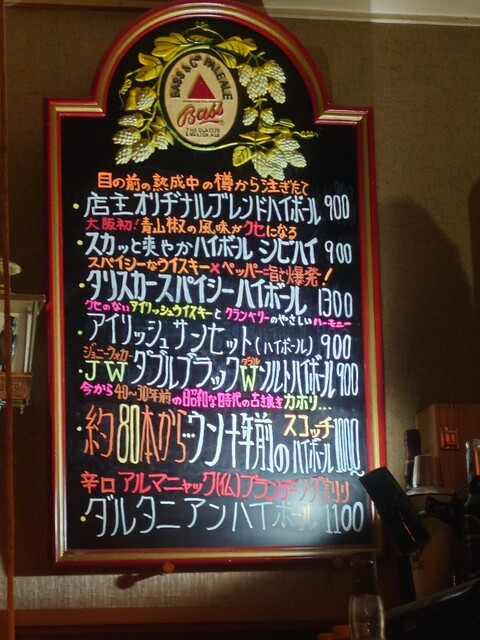 BASS & Co PALE ALE
Bass
THE CLASSIC
ENGLISH ALE
目の前の熟成中の樽から注ぎたて
店主オリヂナルブレンドハイボール 900
大阪初!青山椒の風味がクセになる
スカッと爽やかハイボール シビハイ 900
スパイシーなウイスキー×ペッパー=旨さ爆発!
タリスカースパイシーハイボール 1300
クセのないアイリッシュウイスキーとクランベリーのやさしいハーモニー
アイリッシュサンセット(ハイボール) 900
ジョニーウォーカー ダブル
JWダブルブラックWソルトハイボール 900
今から40~30年前の昭和な時代の古き良きカホリ...
約80本から…ウン十年前のスコッチハイボール 1000~
辛口アルマニャック(仏)ブランデー
ダルタニアンハイボール 1100